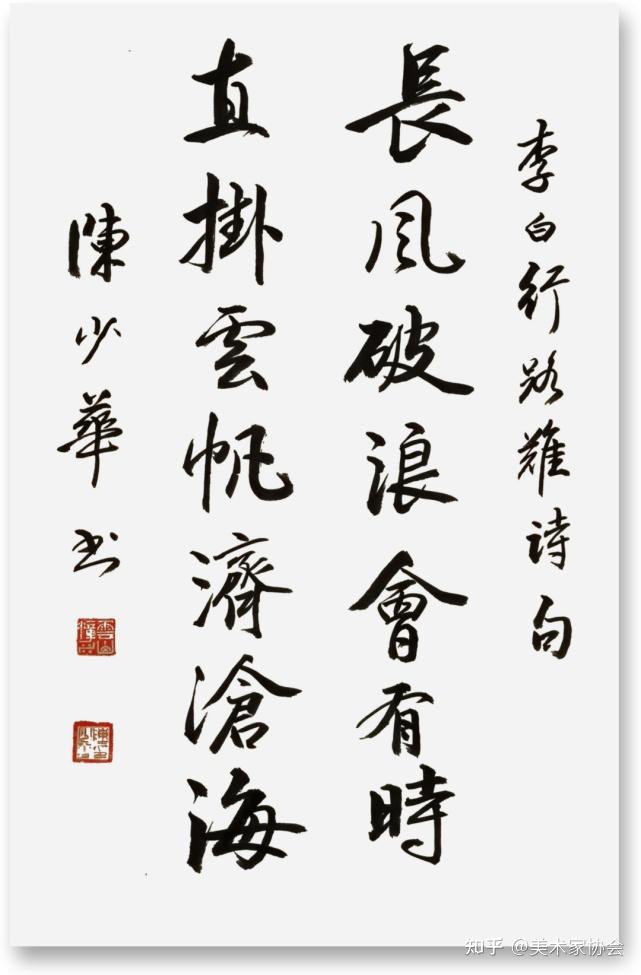 李白行路難詩句
長風破浪會有時
直掛雲帆濟滄海
陳少華书
知乎 @美术家协会